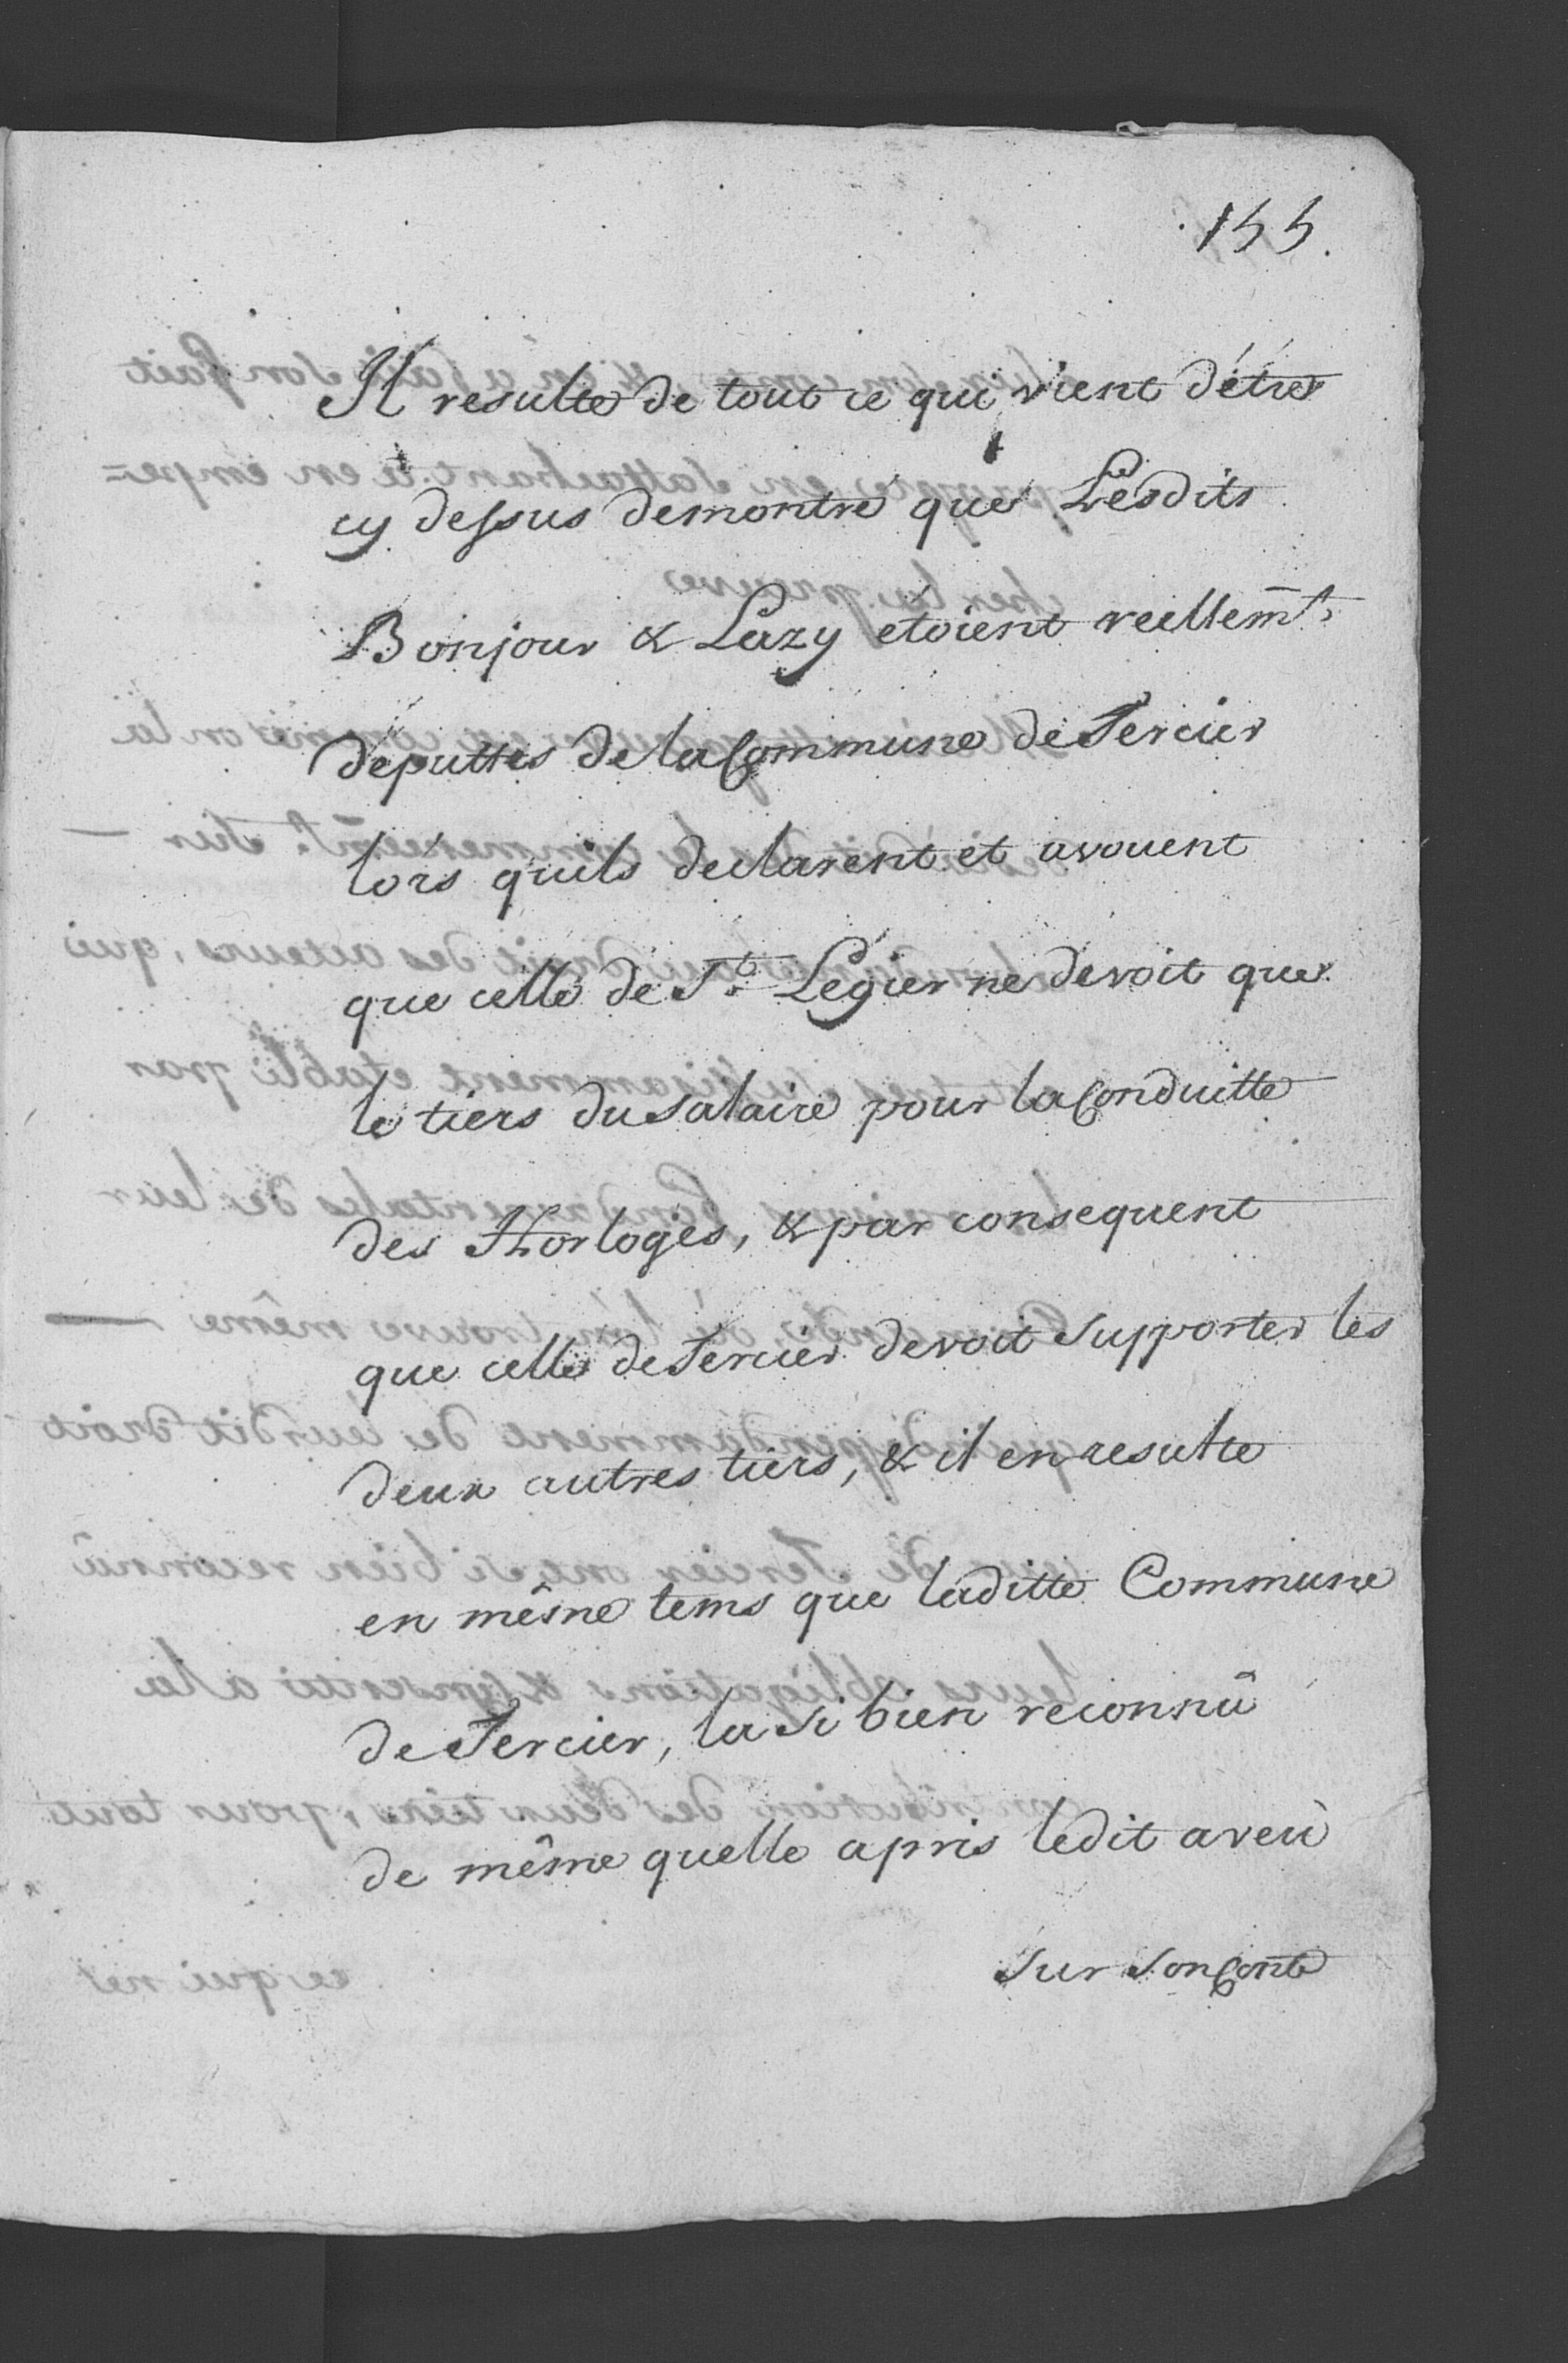 155.
Il resulte de tout ce qui vient d'étre
cy dessus demontré que Lesdits
Bonjour & Lazy etoient reellemt.
députtes de la Commune de Tercier
lors quils declarent et avouent
que celle de St. Légier ne devoit que
le tiers du salaire pour la Conduitte
des Horloges, & par consequent
que celle de Tercier devoit supporter les
deux autres tiers, & il en resulte
en même tems que laditte Commune
de Tercier, la si bien reconnû
de même quelle apris ledit aveù
sur son Conte